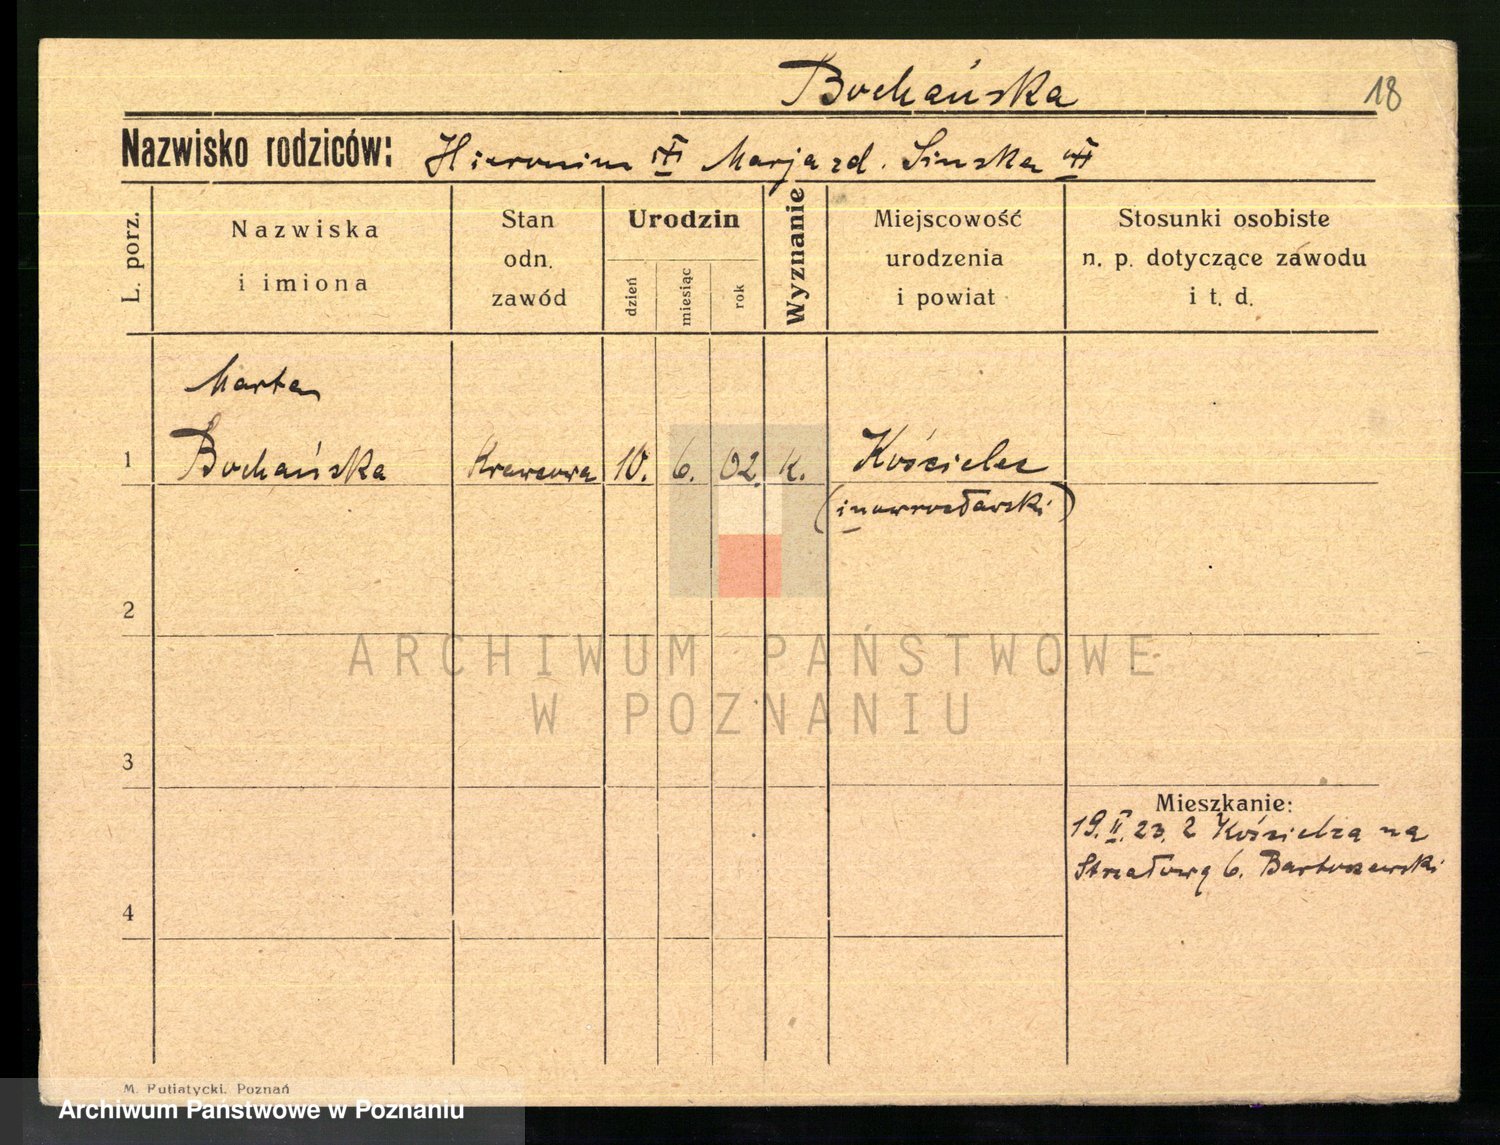 Bochańska
18
Nazwisko rodziców: Hieronim Marja zd. Sinska
L. porz.
Nazwiska i imiona
Stan odn. zawód
Urodzin
dzień
miesiąc
rok
Wyznanie
Miejscowość urodzenia i powiat
Stosunki osobiste n. p. dotyczące zawodu i t. d.
Marta
1 Bochańska Krawcowa 10. 6. 02. k. Kościelec
(inowrocławski)
2
ARCHIWUM PAŃSTWOWE
W POZNANIU
3
Mieszkanie:
19. II. 23. z Kościelca na
Strzałową 6. Bartoszewski
4
M. Putiatycki, Poznań
Archiwum Państwowe w Poznaniu